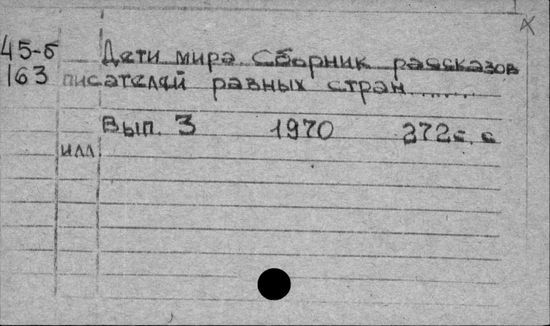 45-б Дети мира. Сборник рассказов
163 писателей разных стран......
Вып. 3 1970 272с. с
илл